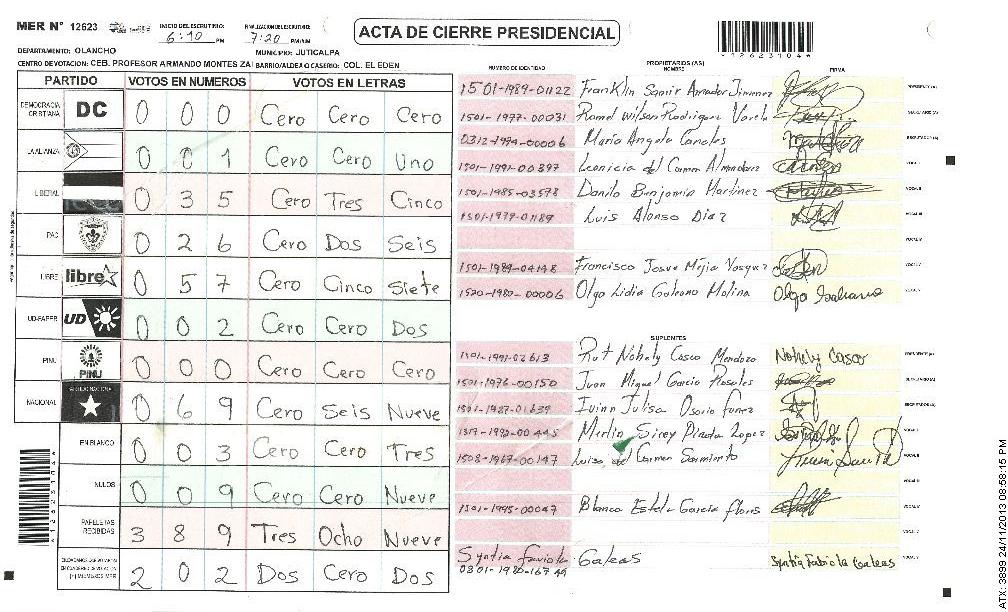 MER N° 12623 INICIO DEL ESCRUTINIO: 6:10 PM FINALIZACION DEL ESCRUTINIO: 7:20 PM/AM
ACTA DE CIERRE PRESIDENCIAL
*12623104*
DEPARTAMENTO: OLANCHO MUNICIPIO: JUTICALPA
CENTRO DE VOTACION: CEB. PROFESOR ARMANDO MONTES ZA BARRIO/ALDEA O CASERIO: COL. EL EDEN
PARTIDO VOTOS EN NUMEROS VOTOS EN LETRAS
DEMOCRACIA CRISTIANA DC 0 0 0 Cero Cero Cero
LA ALIANZA 0 0 1 Cero Cero Uno
LIBERAL 0 3 5 Cero Tres Cinco
PAC 0 2 6 Cero Dos Seis
LIBRE libre 0 5 7 Cero Cinco Siete
UD-FAPER UD 0 0 2 Cero Cero Dos
PINU PINU 0 0 0 Cero Cero Cero
NACIONAL 0 6 9 Cero Seis Nueve
EN BLANCO 0 0 3 Cero Cero Tres
NULOS 0 0 9 Cero Cero Nueve
PAPELETAS RECIBIDAS 3 8 9 Tres Ocho Nueve
2 0 2 Dos Cero Dos
NUMERO DE IDENTIDAD PROPIETARIOS (AS) NOMBRE FIRMA
1501-1989-01122 Franklin Samir Amador Jimenez PRESIDENTE (A)
1501-1977-00031 Romel Wilson Rodriguez Varela
0312-1994-00006 Maria Angela Canales
1501-1991-00397 Leonicia del Carmen Almendarez
1501-1985-03578 Danilo Benjamin Martinez
1501-1979-01189 Luis Alonso Diaz
1501-1989-04148 Francisco Josue Mejia Vasquez
1520-1980-00006 Olga Lidia Galeano Molina
SUPLENTES
1501-1991-02613 Rut Nohely Casco Mendoza Nohely Casco PRESIDENTE (A)
1501-1976-00150 Juan Miguel Garcia Rosales
1501-1987-01639 Osorio Funez
Merlin Sirey Lopez
1508-1967-00147 Luisa del Carmen Sarmiento
1501-1995-00047 Blanca Estela Garcia Flores
Syntia Faviola Galeas Syntia Fabiola Galeas
0801-1980-16749
*12623104*
ATX: 3899 24/11/2013 08:58:15 PM